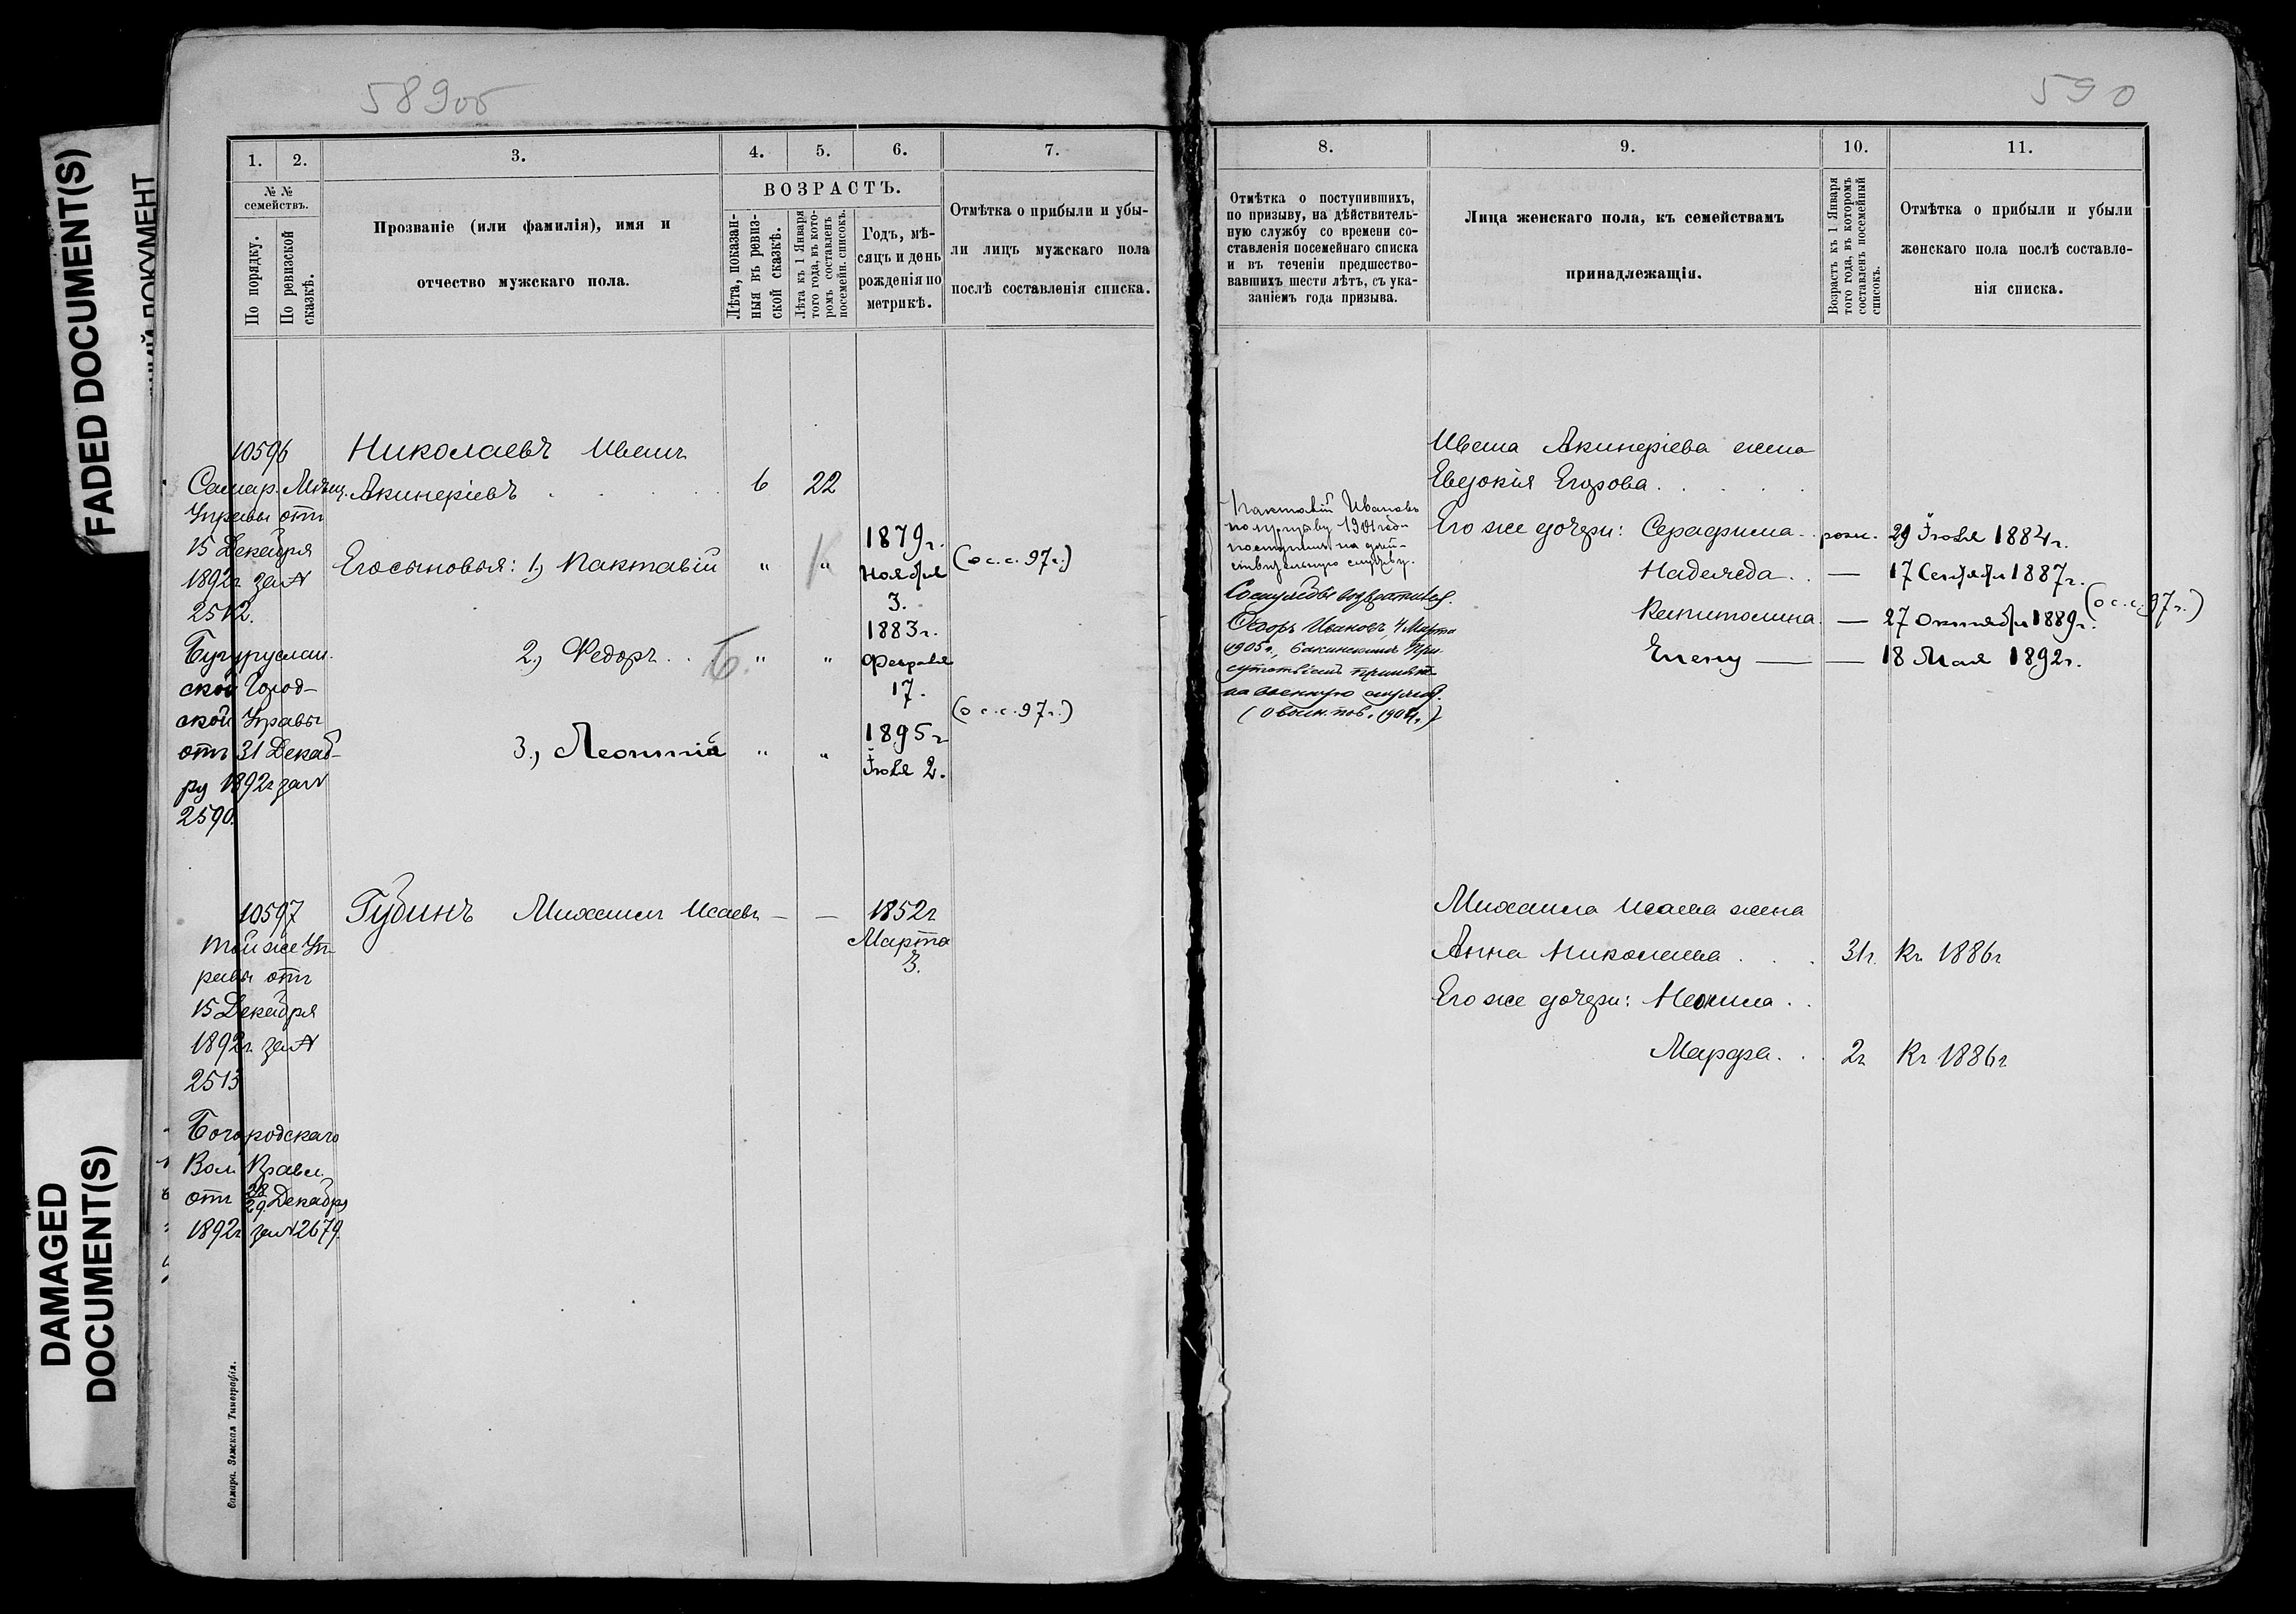 FADED DOCUMENT(S)
DAMAGED
DOCUMENT(S)
589об
1. 2. 3. 4. 5. 6. 7.
№ №
семействъ.
По порядку.
По ревизской
сказкѣ.
Прозваніе (или фамилія), имя и
отчество мужскаго пола.
ВОЗРАСТЪ.
Лѣта, показан-
ныя въ ревиз-
ской сказкѣ.
Лѣта къ 1 Января
того года, въ кото-
ромъ составленъ
посемейн. списокъ.
Годъ, мѣ-
сяцъ и день
рожденія по
метрикѣ.
Отмѣтка о прибыли и убы-
ли лицъ мужскаго пола
послѣ составленія списка.
10596
Самар. Мѣщ.
Управы отъ
15 Декабря
1892г. за №
2512.
Бугуруслан-
ской Город-
ской Управы
отъ 31 Декаб-
ря 1892г за №
2590.
Николаевъ Иванъ
Акинеріевъ 6 22
Его сыновья: 1,) Пактавій " " 1879г.
Ноября
3.
(о с. с. 97г.)
2,) Федоръ Б. " " 1883г.
Февраля
17.
3,) Леонтій " " 1895г
Іюля 2.
(о с. с. 97г.)
10597
той же Уп-
равы отъ
15 Декабря
1892г. за №
2513
Богородскаго
Вол. Правл.
отъ 28/29 Декабря
1892г за № 2679.
Губинъ Михаилъ Исаевъ — — 1852г
Марта
3.
Самара. Земская Типографія.
590
8. 9. 10. 11.
Отмѣтка о поступившихъ,
по призыву, на дѣйствитель-
ную службу со времени со-
ставленія посемейнаго списка
и въ теченіи предшество-
вавшихъ шести лѣтъ, съ ука-
заніемъ года призыва.
Лица женскаго пола, къ семействамъ
принадлежащія.
Возрастъ къ 1 Января
того года, въ которомъ
составленъ посемейный
списокъ.
Отмѣтка о прибыли и убыли
женскаго пола послѣ составле-
нія списка.
Пактавій Ивановъ
по призыву 1901 года
поступилъ на дѣй-
ствительную службу.
Со службы возвратился.
Федоръ Ивановъ, 4 Марта
1905г., Бакинскимъ При-
сутствіемъ принятъ
на военную службу.
(о воин. пов. 1904г.)
Ивана Акинеріева жена
Евдокія Егорова
Его же дочери: Серафима родил. 29 Іюля 1884г.
Надежда — 17 Сентября 1887г.
Капитолина — 27 Октября 1889г.
(о с. с. 97г.)
Елену — 18 Мая 1892г.
Михаила Исаева жена
Анна Николаева 31г. Къ 1886г
Его же дочери:
Марфа 2г Къ 1886г